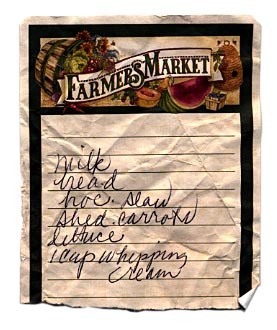 FARMERS MARKET
milk
bread
broc. slaw
shed. carrots
lettuce
1 cup whipping
cream